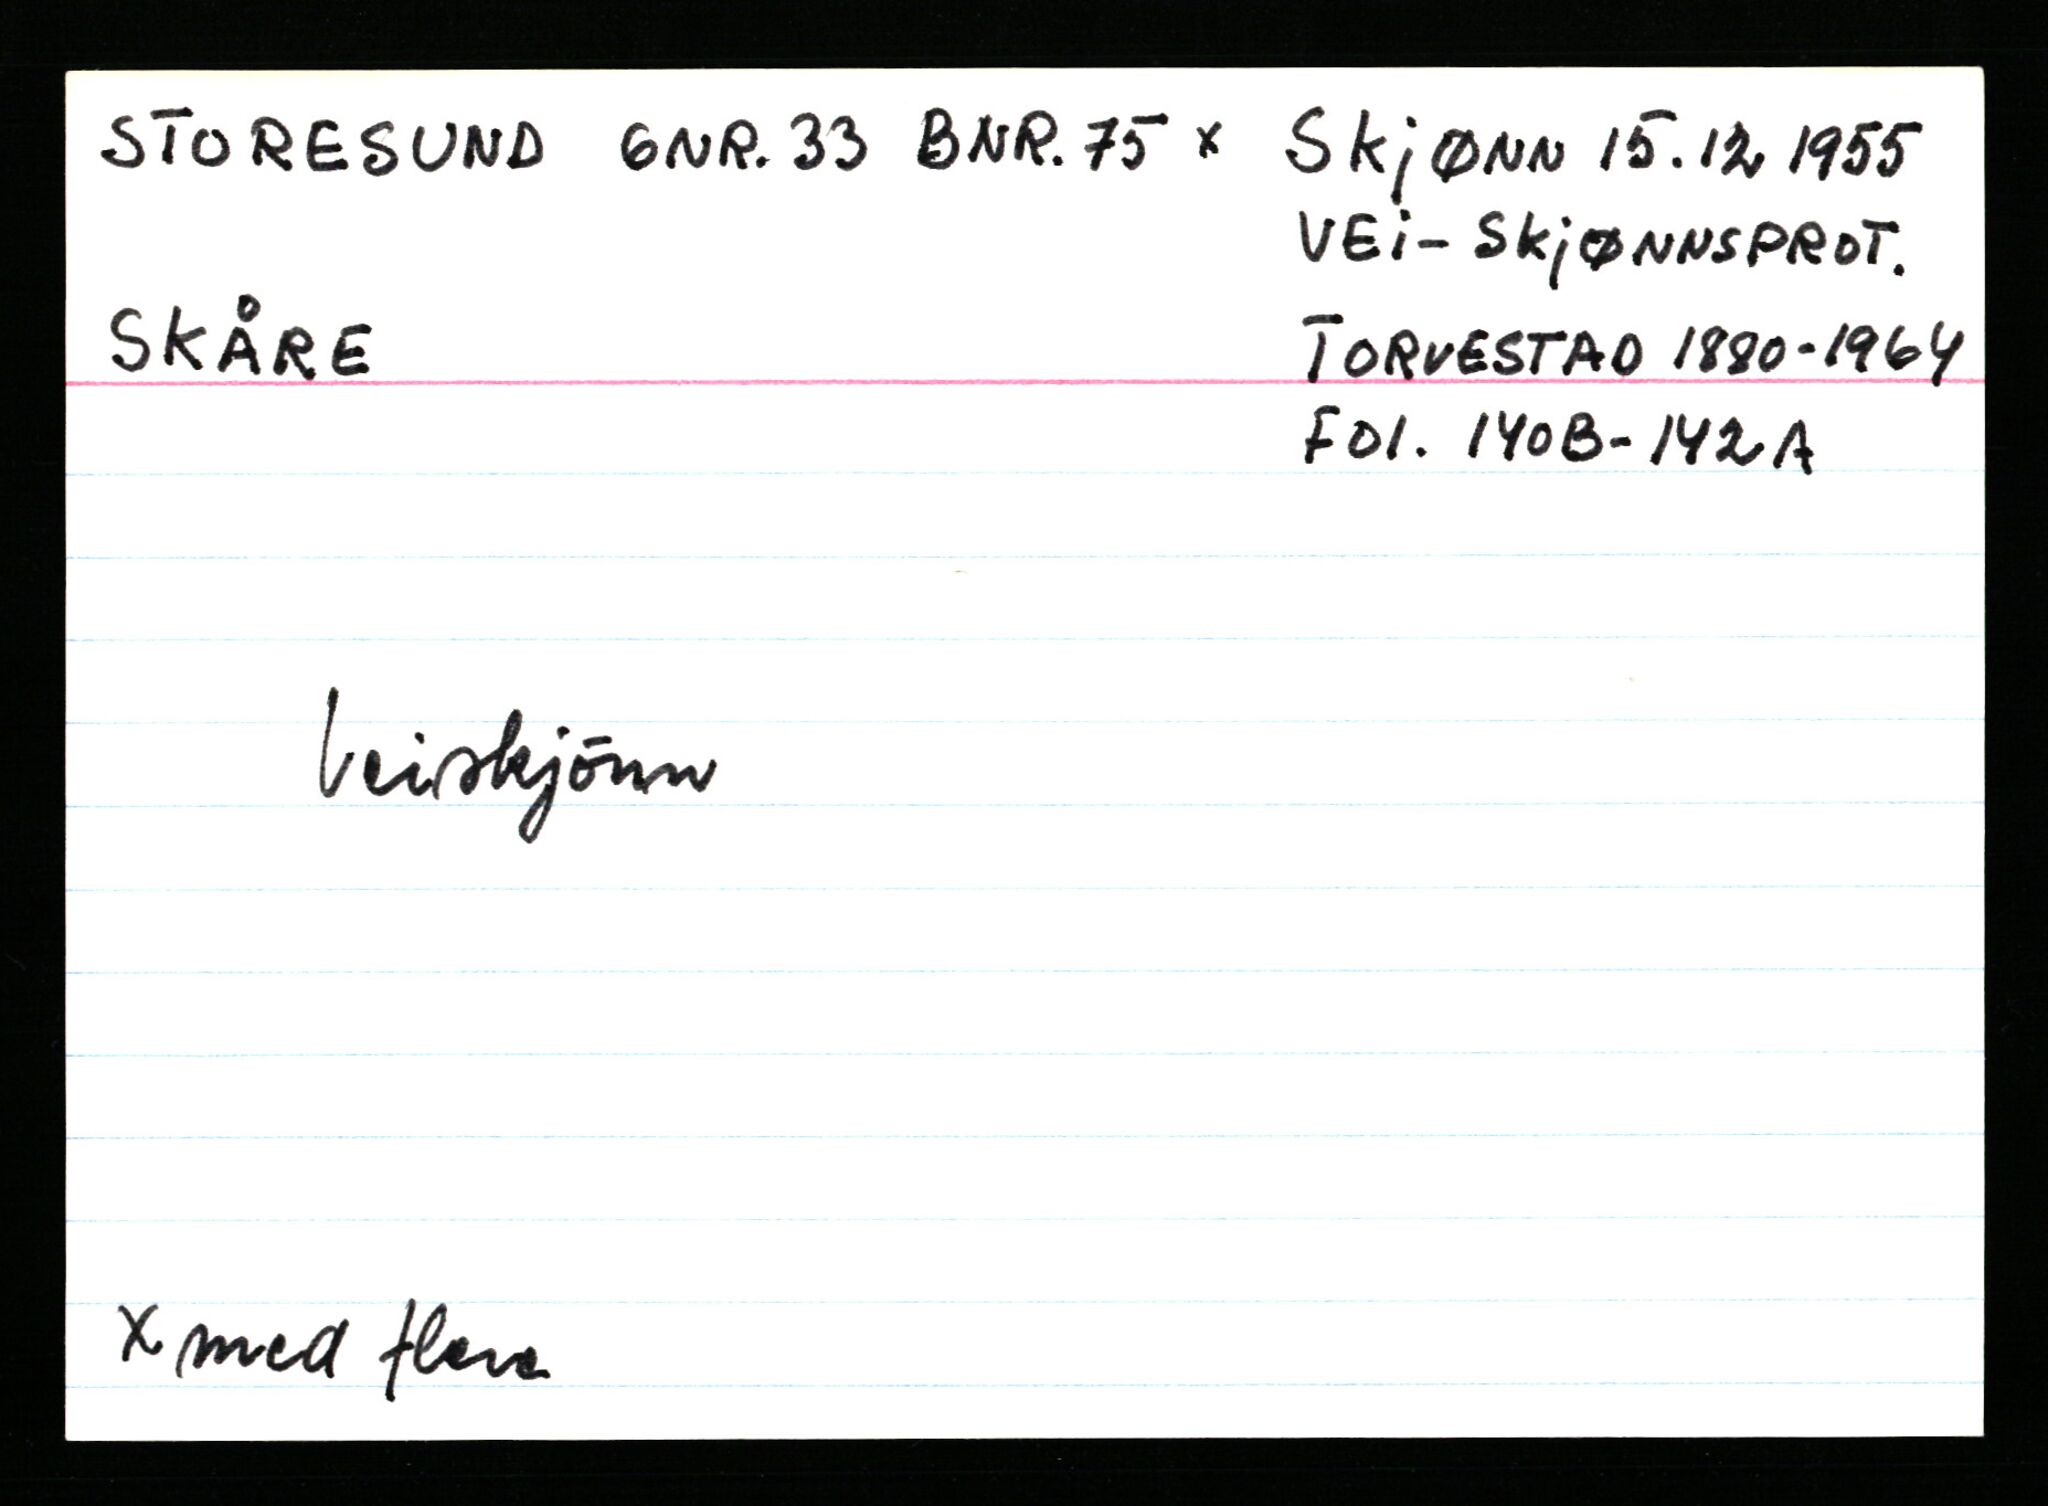 STORESUND GNR. 33 BNR. 75 x Skjønn 15.12 1955
VEi- SkjØNNSPROT.
SKÅRE TORVESTAD 1880-1964
FOl. 140B-142A
Veiskjönn
x med flere